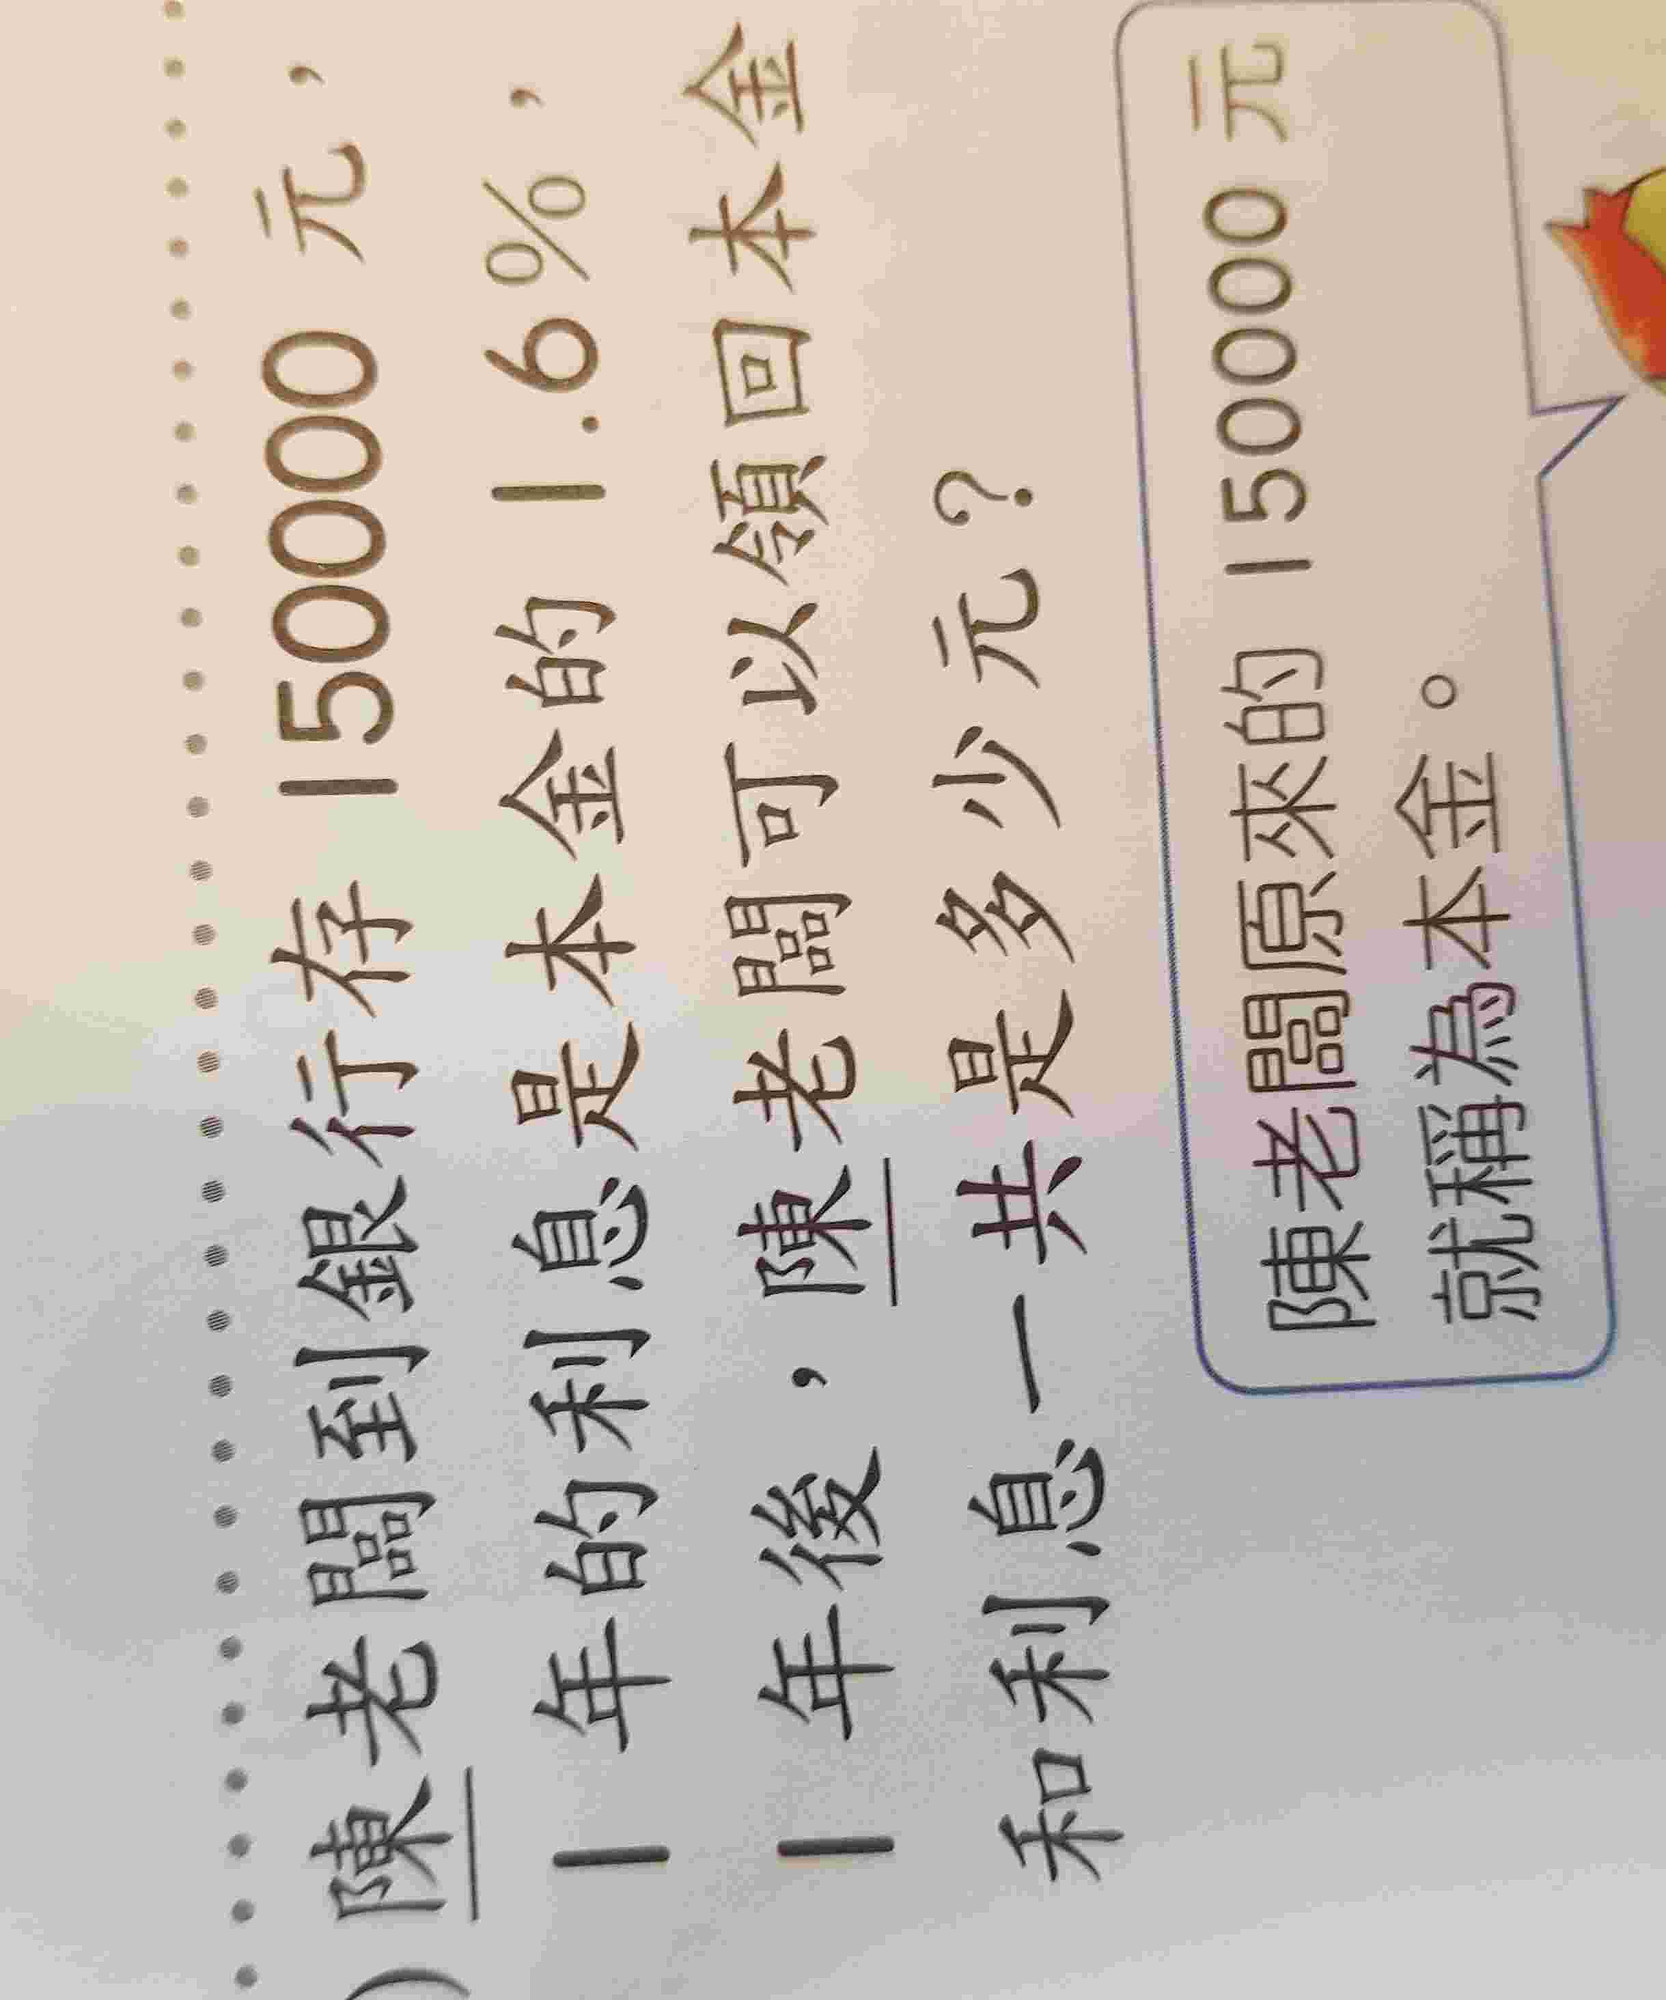 )陳老闆到銀行存 150000 元，
1 年的利息是本金的 1.6%，
1 年後，陳老闆可以領回本金
和利息一共是多少元？
陳老闆原來的 150000 元
就稱為本金。